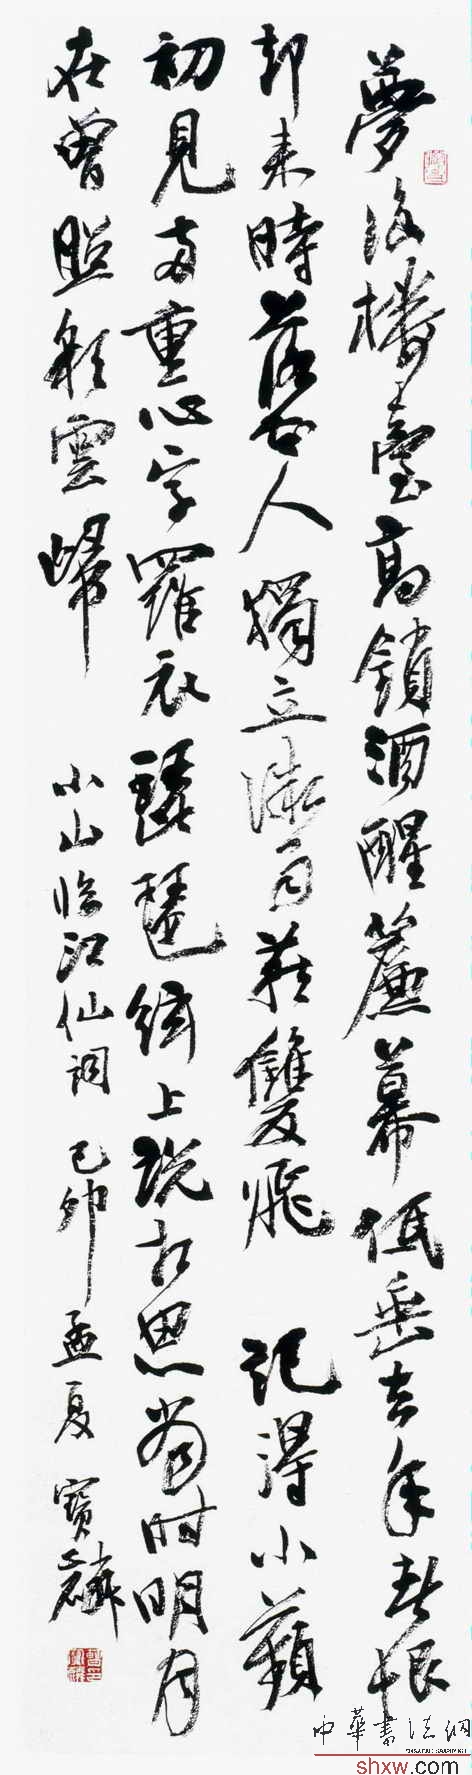 夢後樓臺高鎖酒醒簾幕低垂去年春恨
却来時落花人獨立微雨燕雙飛 記得小蘋
初見兩重心字羅衣琵琶絃上説相思當时明月
在曾照彩雲歸
小山臨江仙詞 己卯孟夏 寶麟
中華書法網
shxw.com